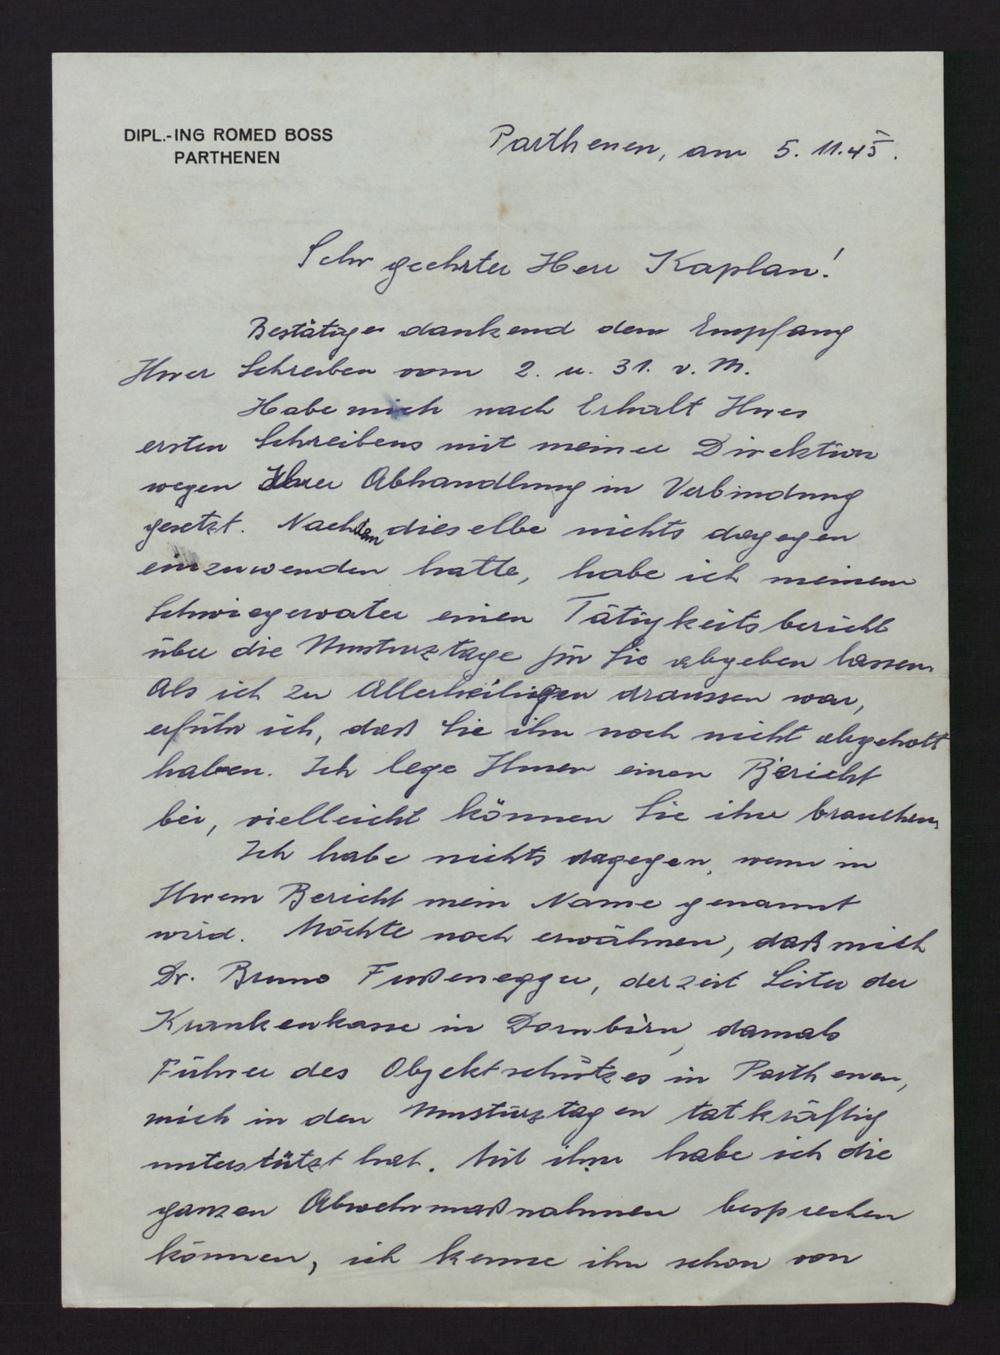 DIPL.-ING ROMED BOSS
PARTHENEN
Parthenen, am 5. 11. 45.
Sehr geehrter Herr Kaplan!
Bestätige dankend den Empfang
Ihrer Schreiben vom 2. u. 31. v. M.
Habe mich nach Erhalt Ihres
ersten Schreibens mit meiner Direktion
wegen Ihrer Abhandlung in Verbindung
gesetzt. Nachdem dieselbe nichts dagegen
einzuwenden hatte, habe ich meinem
Schwiegervater einen Tätigkeitsbericht
über die Umsturztage für Sie abgeben lassen.
Als ich zu Allerheiligen draussen war,
erfuhr ich, daß Sie ihn noch nicht abgeholt
haben. Ich lege Ihnen einen Bericht
bei, vielleicht können Sie ihn brauchen.
Ich habe nichts dagegen, wenn in
Ihrem Bericht mein Name genannt
wird. Möchte noch erwähnen, daß mich
Dr. Bruno Fußenegger, derzeit Leiter der
Krankenkasse in Dornbirn, damals
Führer des Objektschutzes in Parthenen,
mich in den Umsturztagen tatkräftig
unterstützt hat. Mit ihm habe ich die
ganzen Abwehrmaßnahmen besprechen
können, ich kenne ihn schon von